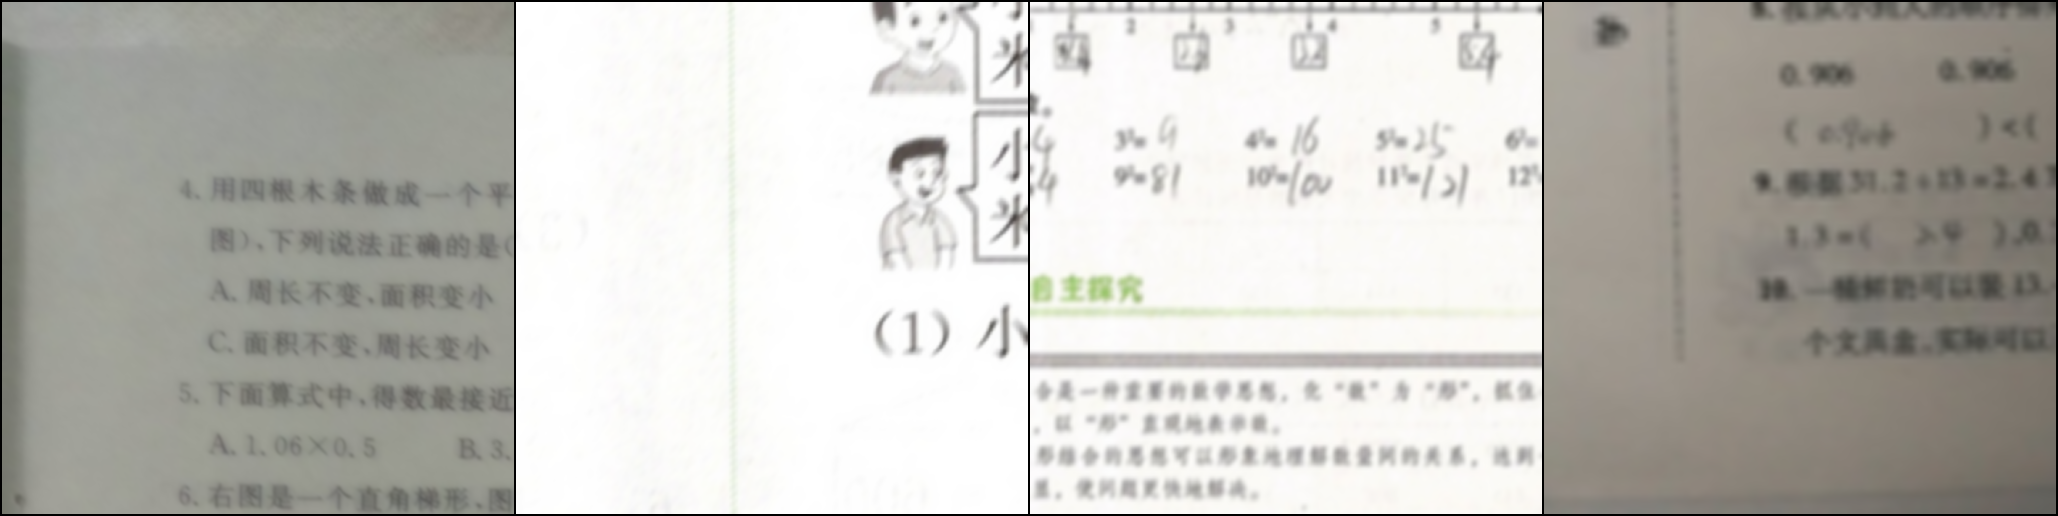 4. 用四根木条做成一个平
图),下列说法正确的是(
A. 周长不变、面积变小
C. 面积不变、周长变小
5. 下面算式中,得数最接近
A. 1.06×0.5 B. 3.
6. 右图是一个直角梯形、图
小
米
小
米
(1) 小
2 3 4 5
3²=9 4²=16 5²=25 6²=
9²=81 10²=100 11²=121 12²
自主探究
合是一种重要的数学思想，化“数”为“形”，抓住
，以“形”直观地表示数。
形结合的思想可以形象地理解数量间的关系，达到
显，使问题更快地解决。
0.906 0.906
( )<(
9. 根据31.2÷13=2.4
1.3=( 24 ),0.
10. 一桶鲜奶可以装13.
个文具盒,实际可以